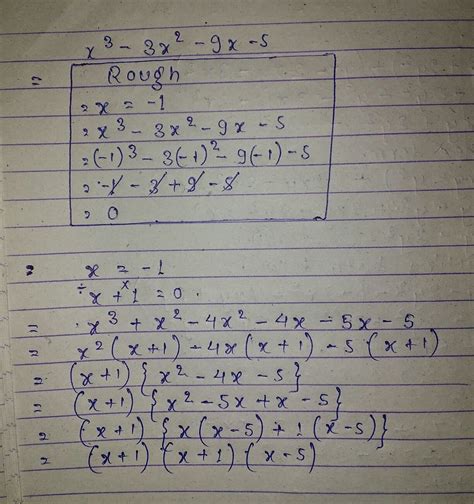 x³ - 3x² - 9x - 5
= Rough
= x = -1
= x³ - 3x² - 9x - 5
= (-1)³ - 3(-1)² - 9(-1) - 5
= -1 - 3 + 9 - 5
= 0
= x = -1
÷ x + 1 = 0
= x³ + x² - 4x² - 4x - 5x - 5
= x² (x+1) - 4x (x+1) - 5 (x+1)
= (x+1) {x² - 4x - 5}
= (x+1) {x² - 5x + x - 5}
= (x+1) {x(x-5) + 1(x-5)}
= (x+1) (x+1) (x-5)